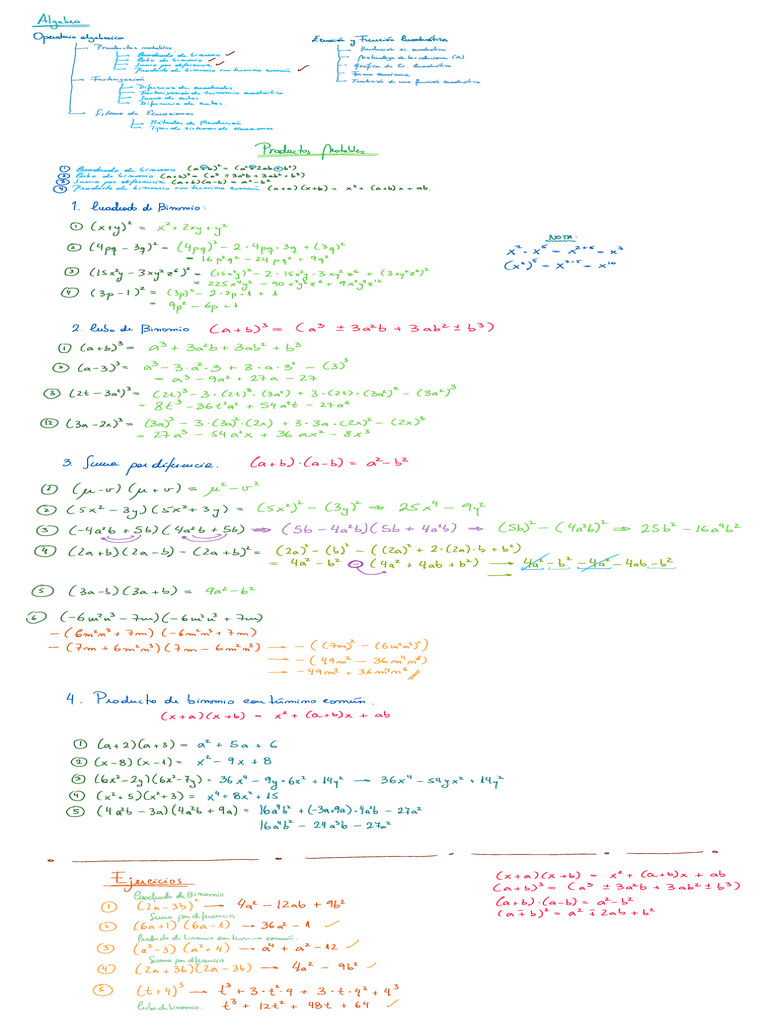 Algebra
Operatoria algebraica
Productos notables
Cuadrado de binomio ✓
Cubo de binomio ✓
Suma por diferencia ✓
Producto de binomio con termino común ✓
Factorización
Diferencia de cuadrados
Factorización de trinomio cuadrático
Suma de cubos
Diferencia de cubos.
Sistema de Ecuaciones
Métodos de Resolución
Tipos de sistemas de ecuaciones
Ecuación y Función Cuadrática
Resolución ec. cuadrática
Gráfica de fc. Cuadrática
Forma canónica
Traslación de una función cuadrática
Productos Notables
① Cuadrado de binomio (a±b)² = (a²±2ab+b²)
② Cubo de binomio (a±b)³ = (a³ ± 3a²b + 3ab² ± b³)
③ Suma por diferencia (a+b)(a-b) = a²-b²
④ Producto de binomio con termino común (x+a)(x+b) = x² + (a+b)x + ab.
1. Cuadrado de Binomio:
① (x+y)² = x² + 2xy + y²
② (4pq - 3q)² = (4pq)² - 2·4pq·3q + (3q)²
= 16p²q² - 24pq² + 9q²
③ (15x²y - 3xy²z⁶)² = (15x²y)² - 2·15x²y·3xy²z⁶ + (3xy²z⁶)²
= 225x⁴y² - 90x³y³z⁶ + 9x²y⁴z¹²
④ (3p-1)² = (3p)² - 2·3p·1 + 1
= 9p² - 6p + 1
NOTA:
x² · x⁵ = x²⁺⁵ = x⁷
(x²)⁵ = x²·⁵ = x¹⁰
2. Cubo de Binomio (a±b)³ = (a³ ± 3a²b + 3ab² ± b³)
① (a+b)³ = a³ + 3a²b + 3ab² + b³
② (a-3)³ = a³ - 3·a²·3 + 3·a·3² - (3)³
= a³ - 9a² + 27a - 27
③ (2t - 3a²)³ = (2t)³ - 3·(2t)²·(3a²) + 3·(2t)·(3a²)² - (3a²)³
= 8t³ - 36t²a² + 54a⁴t - 27a⁶
⑫ (3a-2x)³ = (3a)³ - 3·(3a)²·(2x) + 3·3a·(2x)² - (2x)³
= 27a³ - 54a²x + 36ax² - 8x³
3. Suma por diferencia. (a+b)·(a-b) = a²-b²
① (μ-v)(μ+v) = μ²-v²
② (5x²-3y)(5x²+3y) = (5x²)² - (3y)² ⇒ 25x⁴ - 9y²
③ (-4a²b + 5b)(4a²b + 5b) ⇒ (5b - 4a²b)(5b + 4a²b) ⇒ (5b)² - (4a²b)² ⇒ 25b² - 16a⁴b²
④ (2a+b)(2a-b) - (2a+b)² = (2a)² - (b)² - ((2a)² + 2·(2a)·b + b²)
= 4a² - b² - (4a² + 4ab + b²) → 4a² - b² - 4a² - 4ab - b²
⑤ (3a-b)(3a+b) = 9a² - b²
⑥ (-6m²n³ - 7m)(-6m²n³ + 7m)
- (6m²n³ + 7m)(-6m²n³ + 7m)
- (7m + 6m²n³)(7m - 6m²n³) → - ((7m)² - (6m²n³)²)
→ - (49m² - 36m⁴n⁶)
→ - 49m² + 36m⁴n⁶
4. Producto de binomio con término común.
(x+a)(x+b) = x² + (a+b)x + ab
① (a+2)(a+3) = a² + 5a + 6
② (x-8)(x-1) = x² - 9x + 8
③ (6x²-2y)(6x²-7y) = 36x⁴ - 9y·6x² + 14y² → 36x⁴ - 54yx² + 14y²
④ (x²+5)(x²+3) = x⁴ + 8x² + 15
⑤ (4a²b - 3a)(4a²b + 9a) = 16a⁴b² + (-3a+9a)·4a²b - 27a²
16a⁴b² - 24a³b - 27a²
Ejercicios
Cuadrado de Binomio
① (2a-3b)² → 4a² - 12ab + 9b²
Suma por diferencia
② (6a+1)(6a-1) → 36a² - 1 ✓
Producto de binomio con termino común.
③ (a²-3)(a²+4) → a⁴ + a² - 12 ✓
Suma por diferencia
④ (2a+3b)(2a-3b) → 4a² - 9b² ✓
⑤ (t+4)³ → t³ + 3·t²·4 + 3·t·4² + 4³
Cubo de binomio. t³ + 12t² + 48t + 64 ✓
(x+a)(x+b) = x² + (a+b)x + ab
(a±b)³ = (a³ ± 3a²b + 3ab² ± b³)
(a+b)·(a-b) = a²-b²
(a∓b)² = a² ∓ 2ab + b²